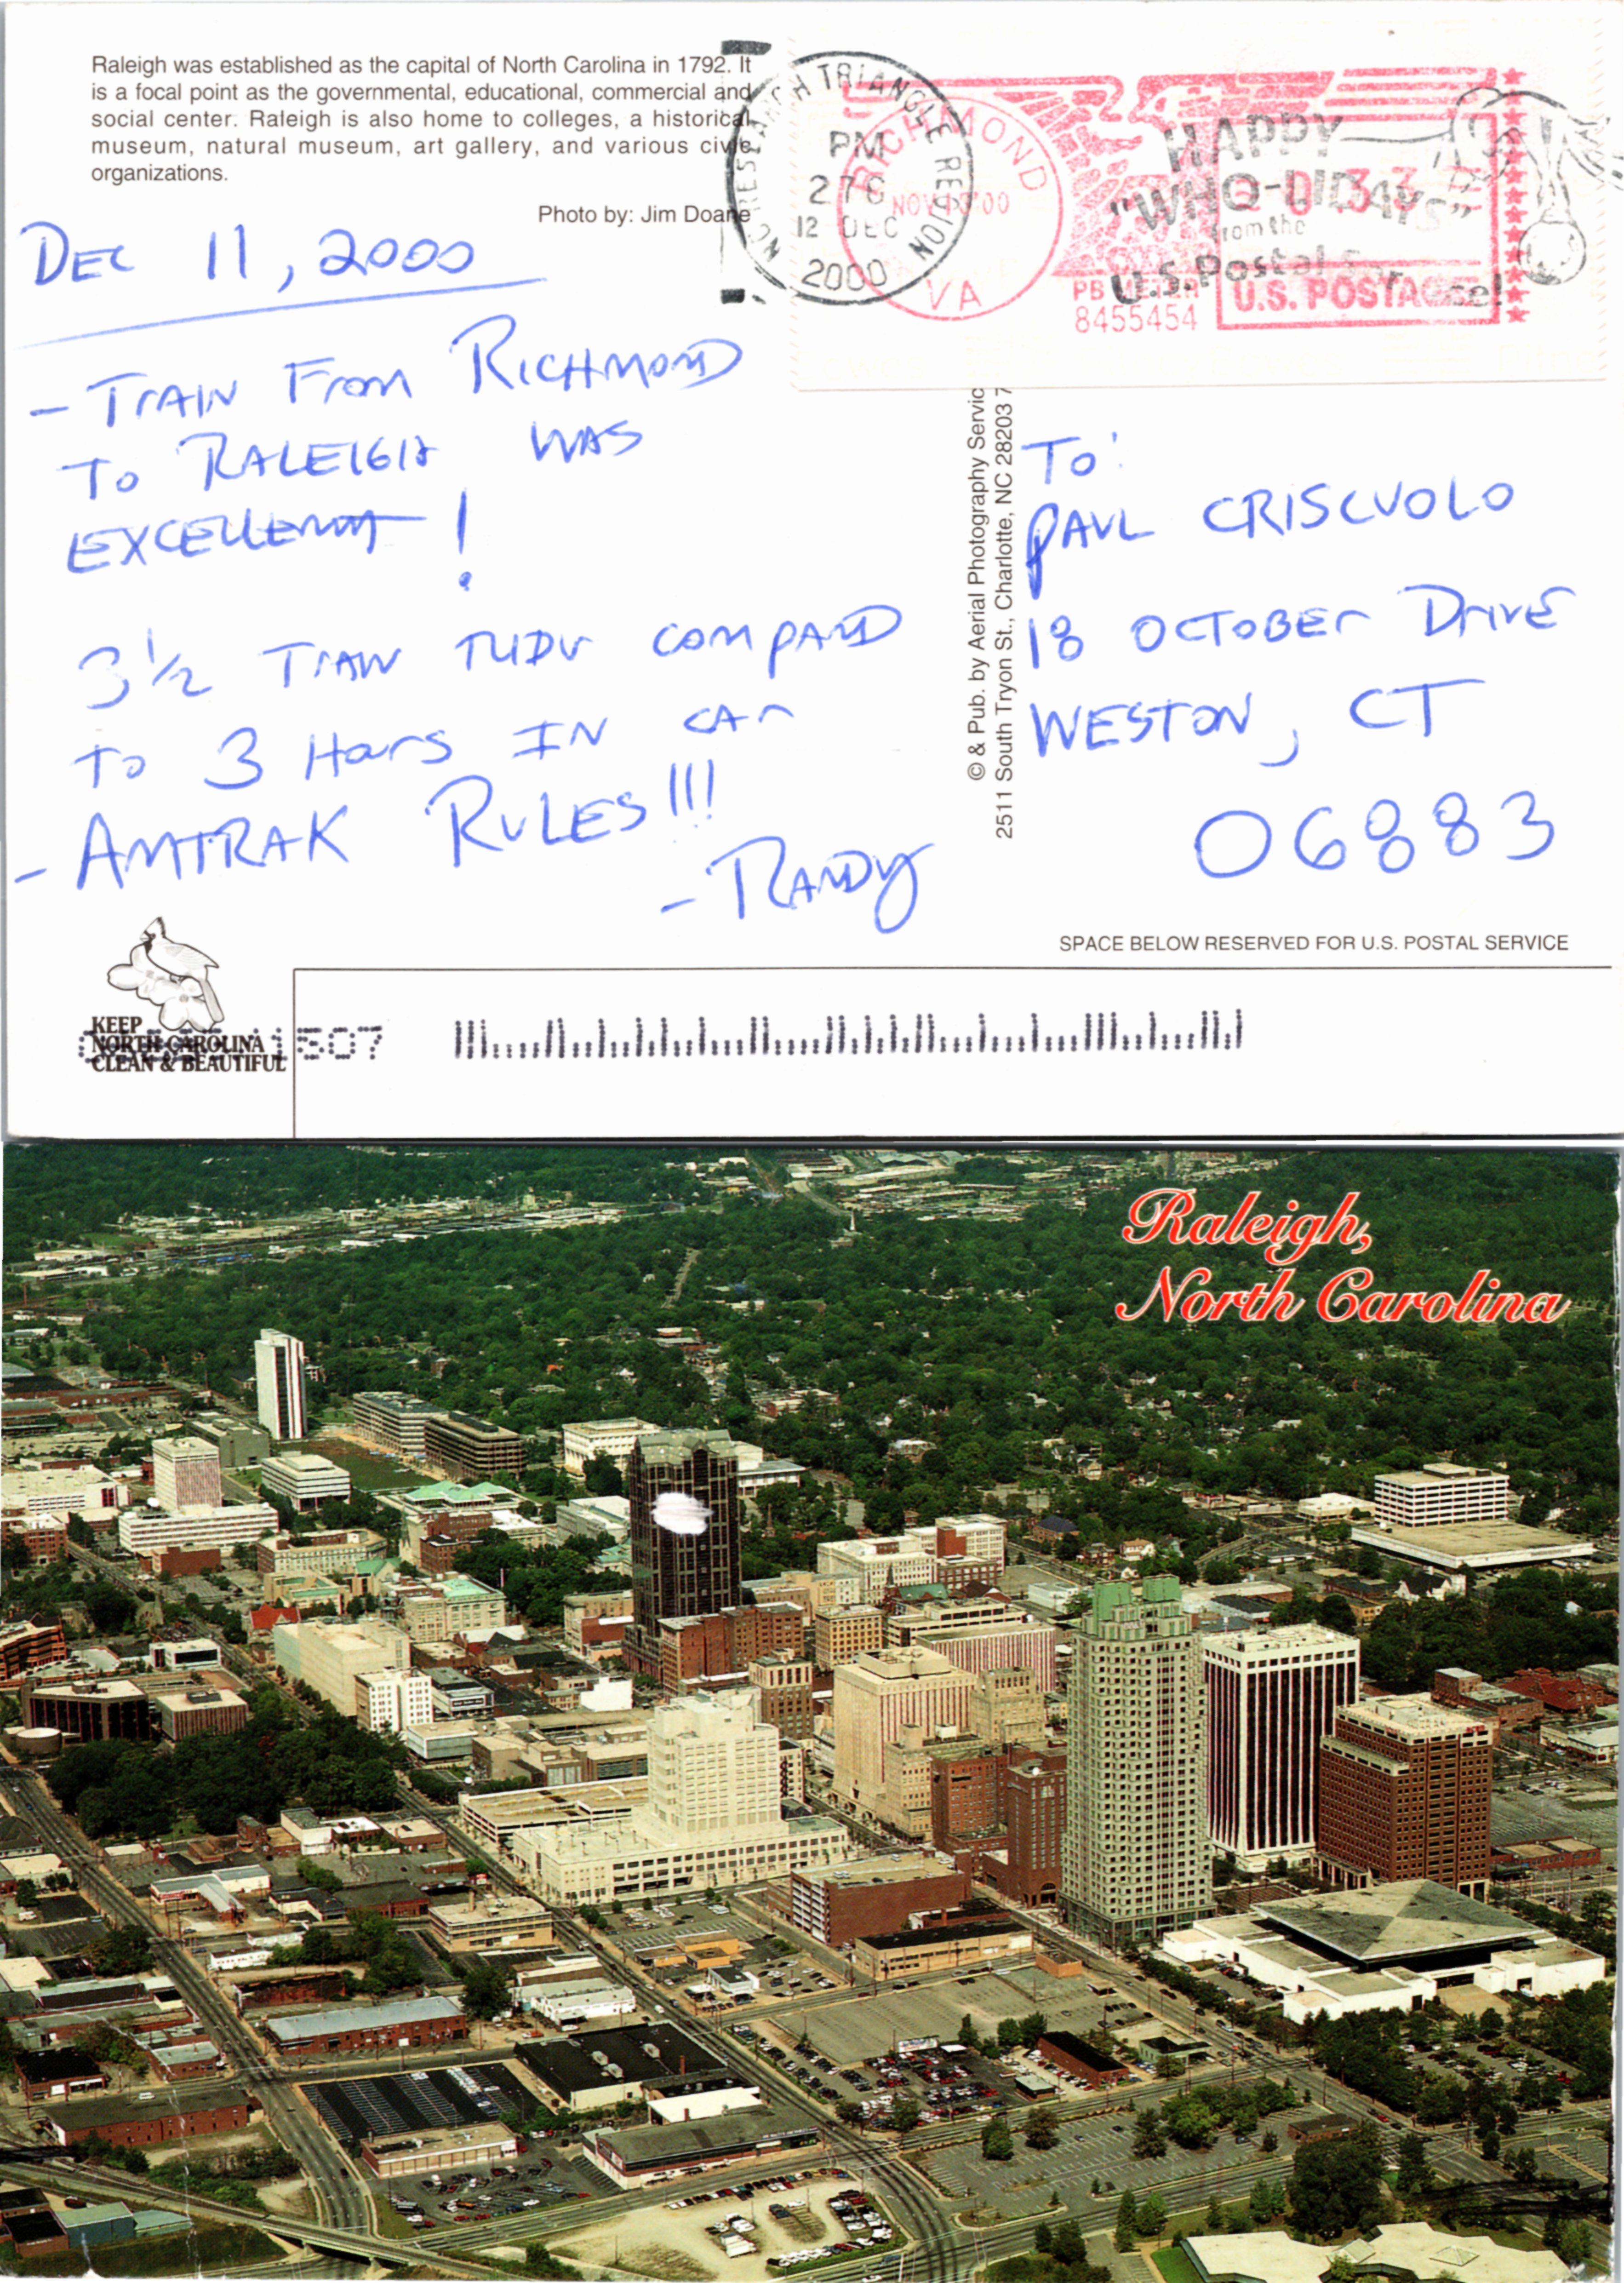 Raleigh was established as the capital of North Carolina in 1792. It
is a focal point as the governmental, educational, commercial and
social center. Raleigh is also home to colleges, a historical
museum, natural museum, art gallery, and various civic
organizations.
Photo by: Jim Doane
NC RESEARCH TRIANGLE REGION
PM
276
12 DEC
2000
RICHMOND
NOV 00
VA
PB METER
8455454
U.S. POSTAGE
HAPPY
"WHO-LIDAYS"
from the
U.S. Postal
DEC 11, 2000
- TRAIN From RICHMOND
TO RALEIGH WAS
EXCELLENT!
3 1/2 TRAIN COMPARED
TO 3 Hours IN CAR
- AMTRAK RULES!!!
- RANDY
© & Pub. by Aerial Photography Servic
2511 South Tryon St., Charlotte, NC 28203 7
To:
PAUL CRISCUOLO
18 OCTOBER Drive
WESTON, CT
06883
SPACE BELOW RESERVED FOR U.S. POSTAL SERVICE
KEEP
NORTH CAROLINA
CLEAN & BEAUTIFUL
1507
Raleigh,
North Carolina